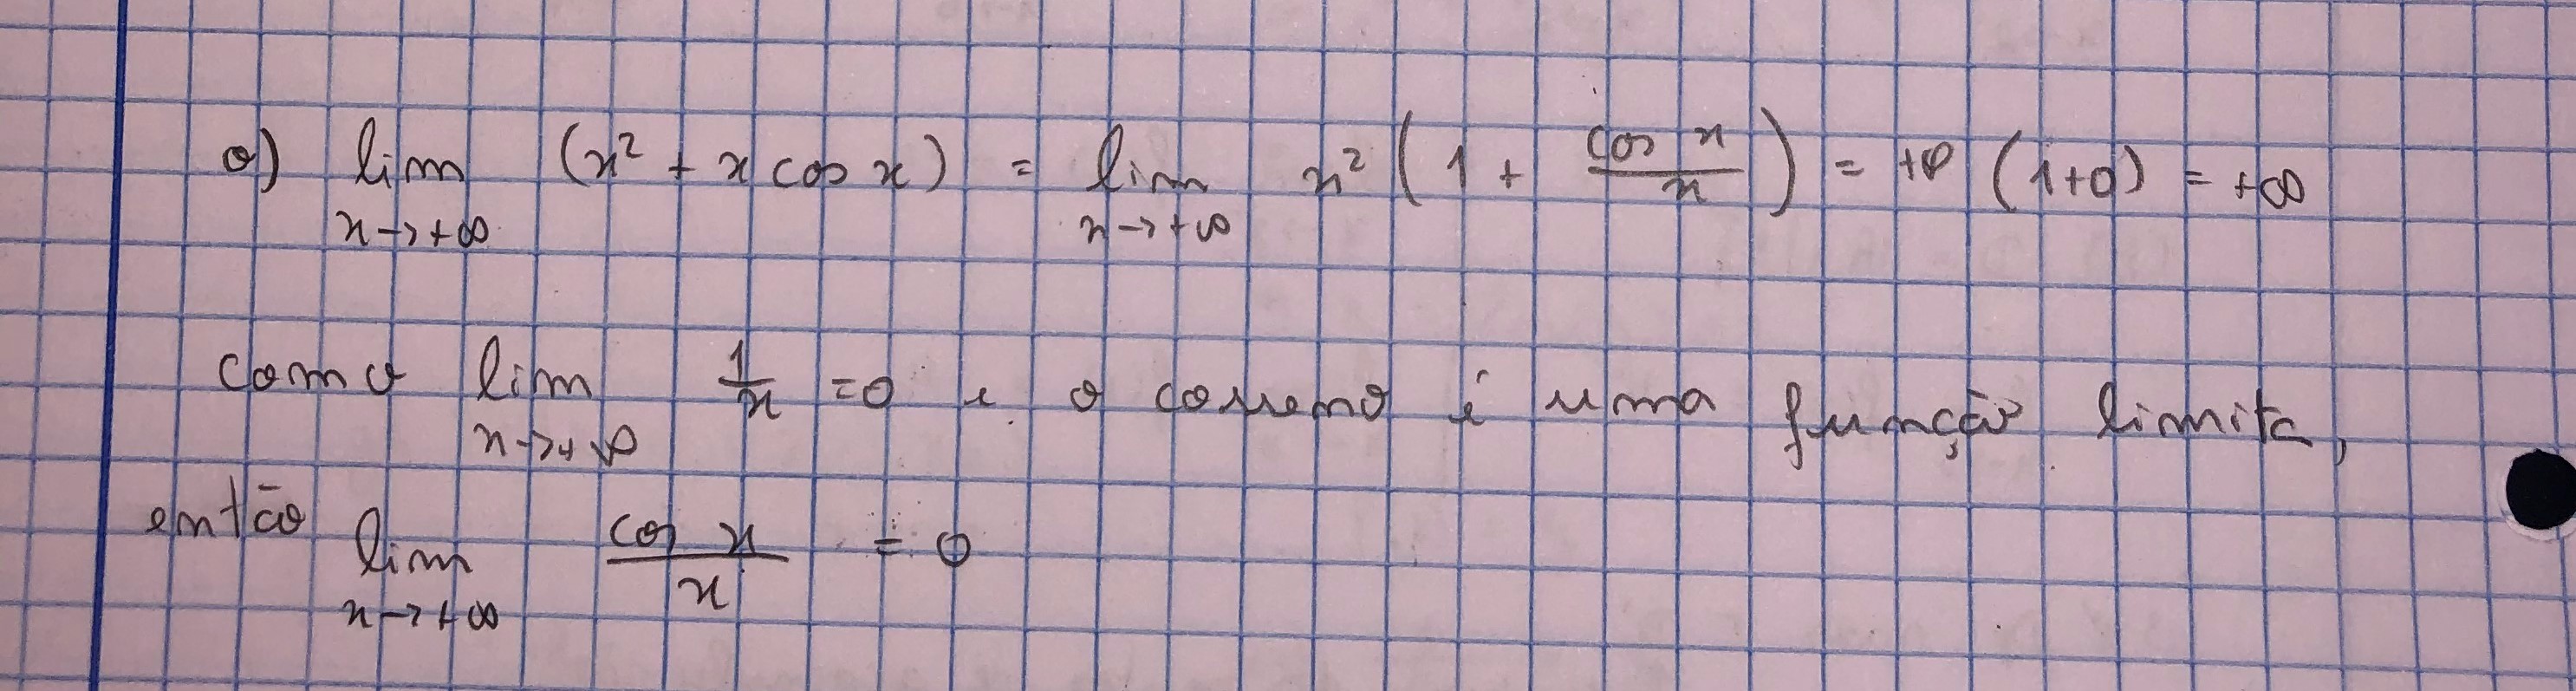 o) lim x→+∞ (x² + x cos x) = lim x→+∞ x² (1 + cos x / x) = +∞ (1+0) = +∞
como lim x→+∞ 1/x = 0 e o cosseno é uma função limita,
então lim x→+∞ cos x / x = 0